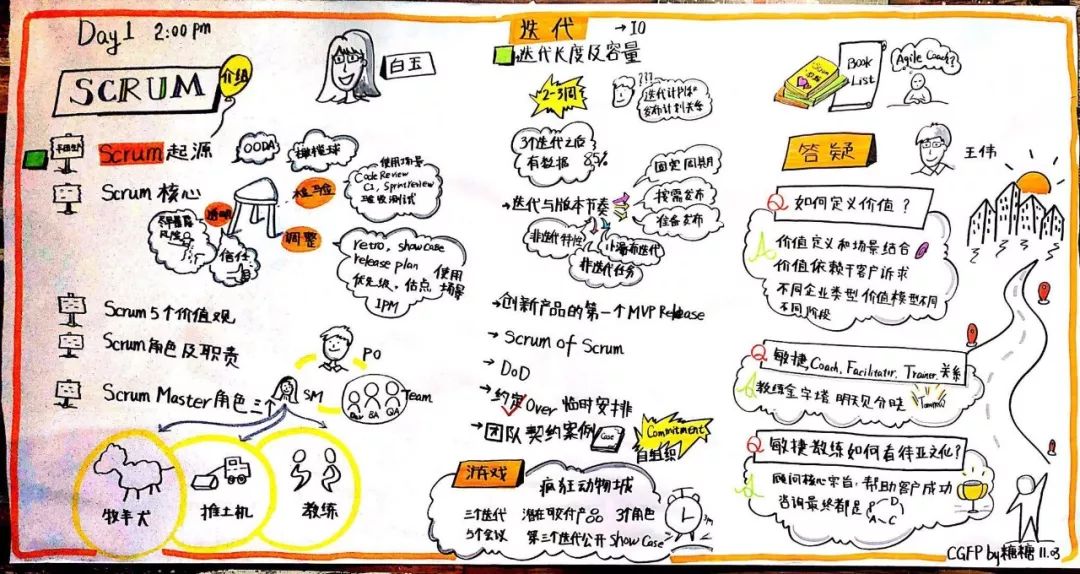 Day 1 2:00 pm
SCRUM
介绍
白玉
Scrum 起源
OODA
橄榄球
Scrum 核心
透明
检视
调整
使用场景
Code Review
CI, Sprint Review
验收测试
风险
信任
retro, show case
release plan
优先级, 估点
IPM
使用
场景
Scrum 5个价值观
Scrum 角色及职责
Scrum Master 角色三个
PO
SM
Team
Dev BA QA
牧羊犬
推土机
教练
迭代
→ IO
迭代长度及容量
2-3周
???
迭代计划和
发布计划关系
3个迭代之后
有数据 85%
→迭代与版本节奏
固定周期
按需发布
准备发布
非迭代特性
小瀑布迭代
非迭代任务
→创新产品的第一个MVP Release
→ Scrum of Scrum
→ DoD
→ 约定 Over 临时安排
→ 团队契约案例
Case
Commitment
自组织
游戏
疯狂动物城
三个迭代 潜在可交付产品 3个角色
5个会议 第三个迭代公开 Show Case
Scrum
Book
List
Agile Coach?
答疑
王伟
Q 如何定义价值?
A 价值定义和场景结合
价值依赖于客户诉求
不同企业类型 价值模型不同
不同阶段
Q 敏捷, Coach, Facilitator, Trainer 关系
A 教练金字塔 明天见分晓
Tomorrow
Q 敏捷教练如何看待亚文化?
A 顾问核心宗旨, 帮助客户成功
咨询最终都是
B D
A C
CGFP by 糖糖 11.03